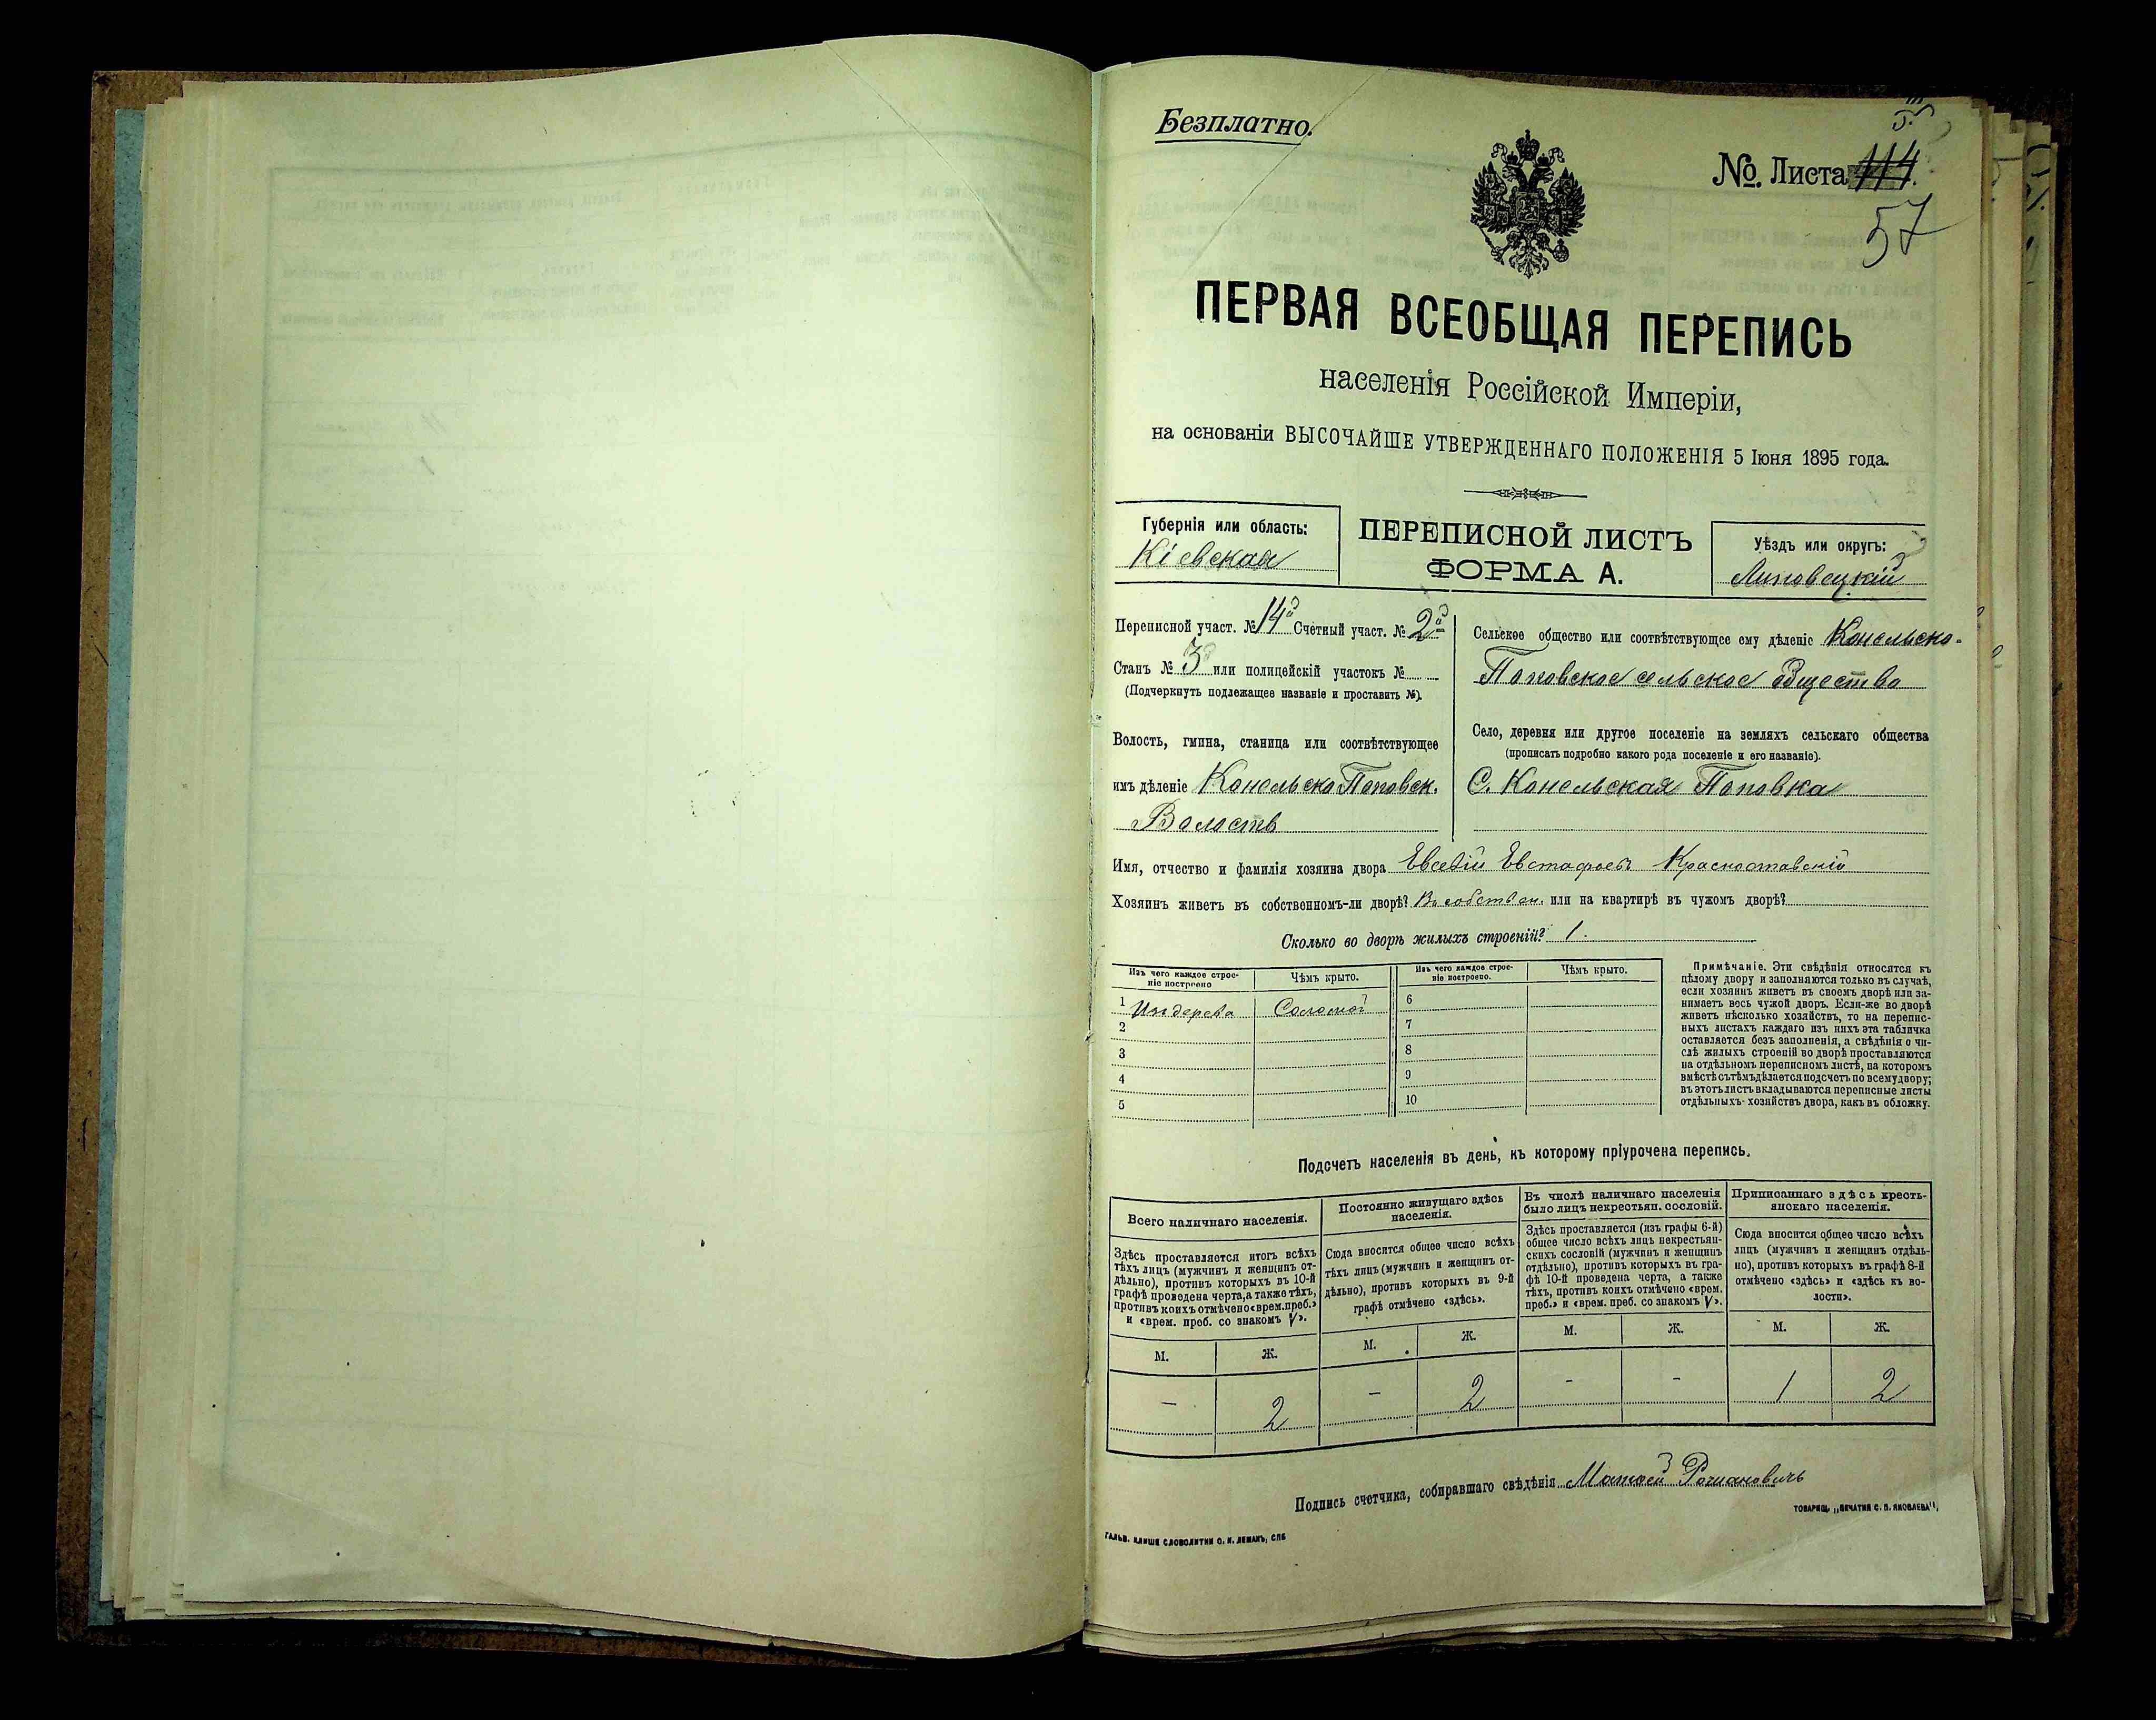 Безплатно.
№ Листа 114.
57
ПЕРВАЯ ВСЕОБЩАЯ ПЕРЕПИСЬ
населенія Россійской Имперіи,
на основаніи ВЫСОЧАЙШЕ УТВЕРЖДЕННАГО ПОЛОЖЕНІЯ 5 Іюня 1895 года.
Губернія или область:
Кіевская
ПЕРЕПИСНОЙ ЛИСТЪ
ФОРМА А.
Уѣздъ или округъ:
Липовецкій
Переписной участ. № 14й Счетный участ. № 2й
Станъ № 3 или полицейскій участокъ №
(Подчеркнуть подлежащее названіе и проставить №).
Волость, гмина, станица или соотвѣтствующее
имъ дѣленіе Конельско Поповск.
Волость
Сельское общество или соотвѣтствующее ему дѣленіе Конельско-
Поповское сельское общество
Село, деревня или другое поселеніе на земляхъ сельскаго общества
(прописать подробно какого рода поселеніе и его названіе).
С. Конельская Поповка
Имя, отчество и фамилія хозяина двора Евсевій Евстафьевъ Красноставскій
Хозяинъ живетъ въ собственномъ-ли дворѣ? Въ собствен. или на квартирѣ въ чужомъ дворѣ?
Сколько во дворѣ жилыхъ строеній? 1.
Изъ чего каждое строе-
ніе построено
Чѣмъ крыто.
Изъ чего каждое строе-
ніе построено.
Чѣмъ крыто.
1 Изъ дерева Соломой
2
3
4
5
6
7
8
9
10
Примѣчаніе. Эти свѣдѣнія относятся къ
цѣлому двору и заполняются только въ случаѣ,
если хозяинъ живетъ въ своемъ дворѣ или за-
нимаетъ весь чужой дворъ. Если-же во дворѣ
живетъ нѣсколько хозяйствъ, то на перепис-
ныхъ листахъ каждаго изъ нихъ эта табличка
оставляется безъ заполненія, а свѣдѣнія о чи-
слѣ жилыхъ строеній во дворѣ проставляются
на отдѣльномъ переписномъ листѣ, на которомъ
вмѣстѣ съ тѣмъ дѣлается подсчетъ по всему двору;
въ этотъ листъ вкладываются переписные листы
отдѣльныхъ хозяйствъ двора, какъ въ обложку.
Подсчетъ населенія въ день, къ которому пріурочена перепись.
Всего наличнаго населенія.
Здѣсь проставляется итогъ всѣхъ
тѣхъ лицъ (мужчинъ и женщинъ от-
дѣльно), противъ которыхъ въ 10-й
графѣ проведена черта, а также тѣхъ,
противъ коихъ отмѣчено «врем. преб.»
и «врем. проб. со знакомъ V».
Постоянно живущаго здѣсь
населенія.
Сюда вносится общее число всѣхъ
тѣхъ лицъ (мужчинъ и женщинъ от-
дѣльно), противъ которыхъ въ 9-й
графѣ отмѣчено «здѣсь».
Въ числѣ наличнаго населенія
было лицъ некрестьян. сословій.
Здѣсь проставляется (изъ графы 6-й)
общее число всѣхъ лицъ некрестьян-
скихъ сословій (мужчинъ и женщинъ
отдѣльно), противъ которыхъ въ гра-
фѣ 10-й проведена черта, а также
тѣхъ, противъ коихъ отмѣчено «врем.
преб.» и «врем. преб. со знакомъ V».
Приписаннаго здѣсь кресть-
янскаго населенія.
Сюда вносится общее число всѣхъ
лицъ (мужчинъ и женщинъ отдѣль-
но), противъ которыхъ въ графѣ 8-й
отмѣчено «здѣсь» и «здѣсь къ во-
лости».
М. Ж. М. Ж. М. Ж. М. Ж.
— 2 — 2 - - 1 2
Подпись счетчика, собиравшаго свѣдѣнія Матвей Романовичъ
ТОВАРИЩ. „ПЕЧАТНЯ С. П. ЯКОВЛЕВА“.
ГАЛЬВ. КЛИШЕ СЛОВОЛИТНИ О. И. ЛЕМАНЪ, СПБ